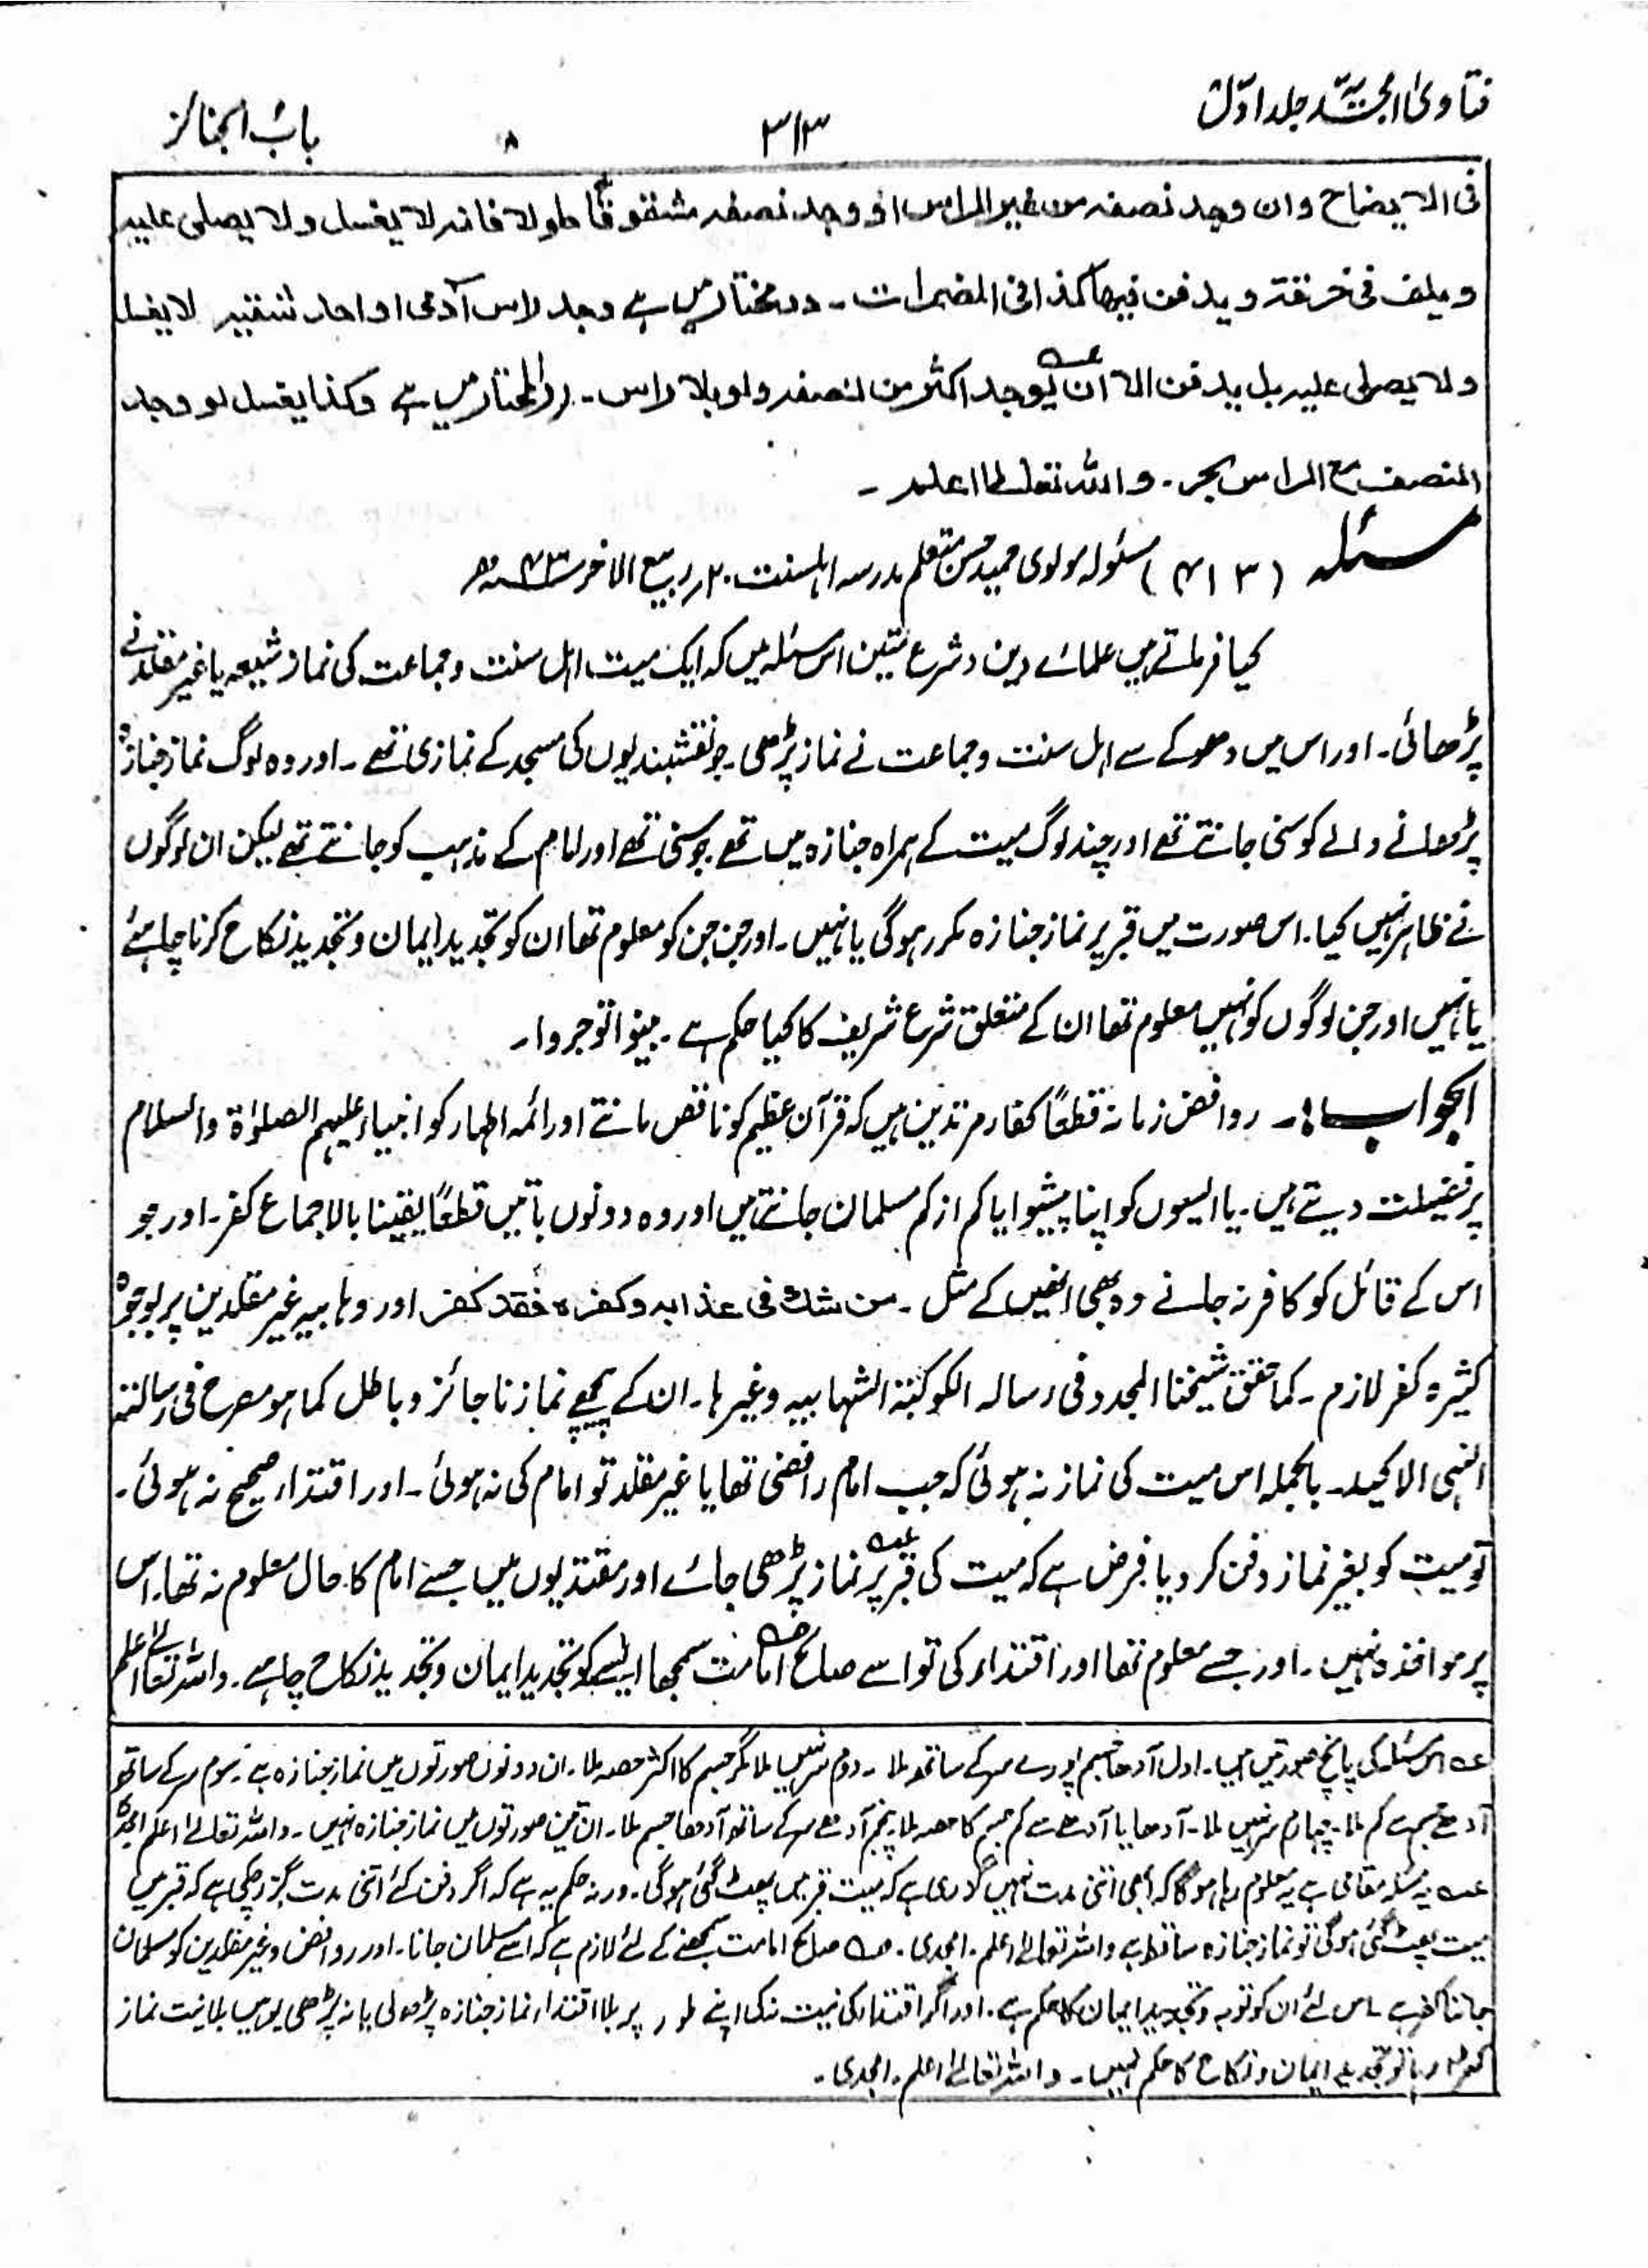 فتاویٰ امجدیہ جلد اوّل
۳۱۳
باب الجنائز
فی الایضاح وان وجد نصفہ من غیر الراس او وجد نصفہ مشقوقًا طولا فانہ لا یغسل ولا یصلی علیہ
ویلف فی خرقۃ ویدفن فیہا کذا فی المضمرات ۔ درمختار میں ہے وجد راس آدمی او احد شقیہ لا یغسل
ولا یصلی علیہ بل یدفن الا ان یوجد اکثر من نصفہ ولو بلا راس ۔ ردالمحتار میں ہے وکذا یغسل لو وجد
النصف مع الراس بحر ۔ واللہ تعالیٰ اعلم ۔
مسئلہ (۴۱۳) مسئولہ مولوی حمید حسن متعلم مدرسہ اہلسنت ۲۰ ربیع الآخر ۴۳ھ
کیا فرماتے ہیں علمائے دین و شرع متین اس مسئلہ میں کہ ایک میت اہل سنت وجماعت کی نماز شیعہ یا غیر مقلد نے
پڑھائی ۔ اور اس میں دھوکے سے اہل سنت وجماعت نے نماز پڑھی ۔ جو نقشبندیوں کی مسجد کے نمازی تھے ۔ اور وہ لوگ نماز جنازہ
پڑھانے والے کو سنی جانتے تھے اور چند لوگ میت کے ہمراہ جنازہ میں تھے جو سنی تھے اور امام کے مذہب کو جانتے تھے لیکن ان لوگوں
نے ظاہر نہیں کیا ۔ اس صورت میں قبر پر نماز جنازہ مکرر ہوگی یا نہیں ۔ اور جن جن کو معلوم تھا ان کو تجدید ایمان و تجدید نکاح کرنا چاہئے
یا نہیں اور جن لوگوں کو نہیں معلوم تھا ان کے متعلق شرع شریف کا کیا حکم ہے ۔ بینوا توجروا ۔
الجواب :۔ روافض زمانہ قطعًا کفار مرتدین ہیں کہ قرآن عظیم کو ناقص مانتے اور ائمہ اطہار کو انبیاء علیہم الصلوٰۃ والسلام
پر فضیلت دیتے ہیں ۔ یا ایسوں کو اپنا پیشوا یا کم از کم مسلمان جانتے ہیں اور وہ دونوں باتیں قطعًا یقینا بالاجماع کفر ۔ اور جو
اس کے قائل کو کافر نہ جانے وہ بھی انھیں کے مثل ۔ من شک فی عذابہ وکفرہ فقد کفر اور وہابیہ غیر مقلدین پر بوجوہ
کثیرہ کفر لازم ۔ کما حقق شیخنا المجدد فی رسالہ الکوکبۃ الشہابیہ وغیرہا ۔ ان کے پیچھے نماز ناجائز و باطل کما ہو مصرح فی رسالتہ
النہی الاکید ۔ بالجملہ اس میت کی نماز نہ ہوئی کہ جب امام رافضی تھا یا غیر مقلد تو امام کی نہ ہوئی ۔ اور اقتداء صحیح نہ ہوئی ۔
تو میت کو بغیر نماز دفن کر دیا فرض ہے کہ میت کی قبر پر عہ نماز پڑھی جائے اور مقتدیوں میں جسے امام کا حال معلوم نہ تھا ۔ اس
پر مواخذہ نہیں ۔ اور جسے معلوم تھا اور اقتداء کی تو اسے صالح امامت سمجھا ایسے کو تجدید ایمان و تجدید نکاح چاہیے ۔ واللہ تعالیٰ اعلم
عہ اس مسئلہ کی پانچ صورتیں ہیں ۔ اول آدھا جسم پورے سر کے ساتھ ملا ۔ دوم سر نہیں ملا مگر جسم کا اکثر حصہ ملا ۔ ان دونوں صورتوں میں نماز جنازہ ہے ۔ سوم سر کے ساتھ
آدھے جسم سے کم ملا ۔ چہارم سر نہیں ملا ۔ آدھا یا آدھے سے کم جسم کا حصہ ملا ۔ پنجم آدھے سر کے ساتھ آدھا جسم ملا ۔ ان تین صورتوں میں نماز جنازہ نہیں ۔ واللہ تعالےٰ اعلم امجدی
عہ یہ مسئلہ مقامی ہے یہ معلوم رہا ہوگا کہ ابھی اتنی مدت نہیں گذری ہے کہ میت قبر میں پھٹ گئی ہوگی ۔ ورنہ حکم یہ ہے کہ اگر دفن کئے اتنی مدت گزر چکی ہے کہ قبر میں
میت پھٹ گئی ہوگی تو نماز جنازہ ساقط ہے واللہ تعالےٰ اعلم ۔ امجدی ۔ صہ صالح امامت سمجھنے کے لئے لازم ہے کہ اسے مسلمان جانا ۔ اور روافض و غیر مقلدین کو مسلمان
جاننا کفر ہے ۔ اس لئے ان کو توبہ و تجدید ایمان کا حکم ہے ۔ اور اگر اقتداء کی نیت نہ کی اپنے طور پر بلا اقتداء نماز جنازہ پڑھ لی یا نہ پڑھی یوہیں بلا نیت نماز
کھڑا رہا تو تجدید ایمان و نکاح کا حکم نہیں ۔ واللہ تعالےٰ اعلم ۔ امجدی ۔